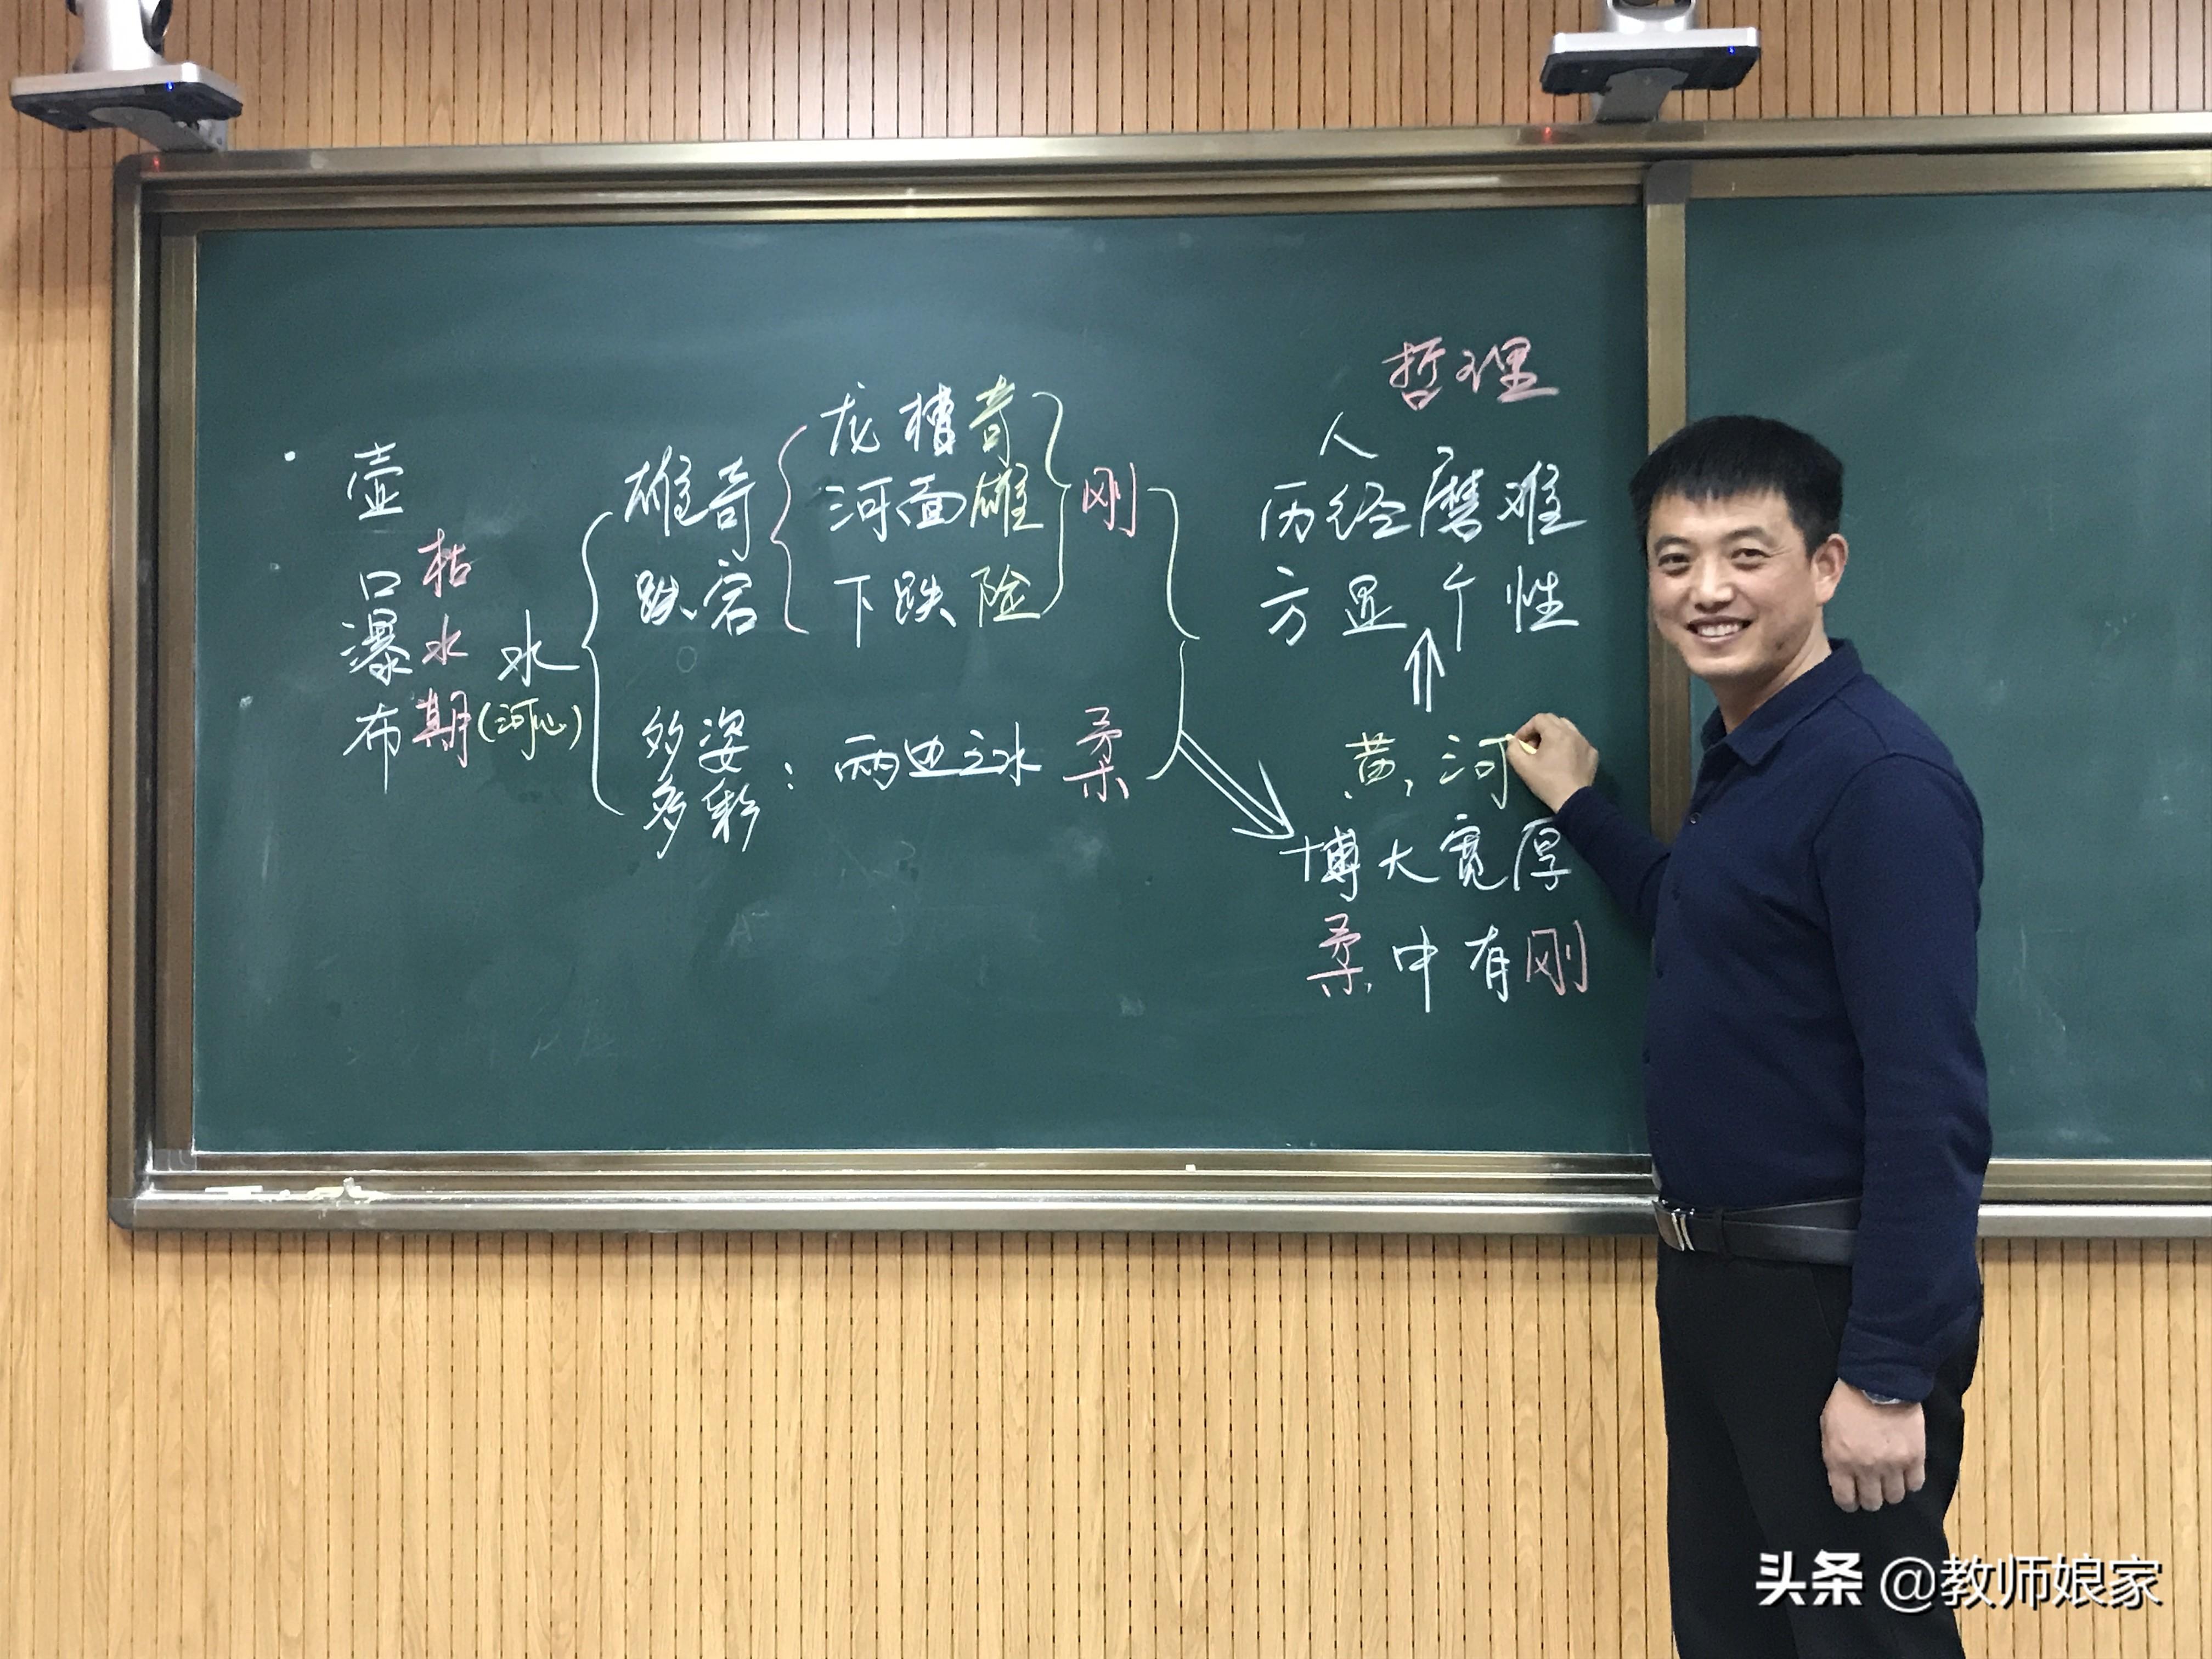 壶口瀑布
枯水期
水
(河心)
雄奇
跌宕
多姿
多彩：
龙槽奇
河面雄
下跌险
刚
两边之水 柔
哲理
人
历经磨难
方显个性
黄河
博大宽厚
柔中有刚
头条 @教师娘家